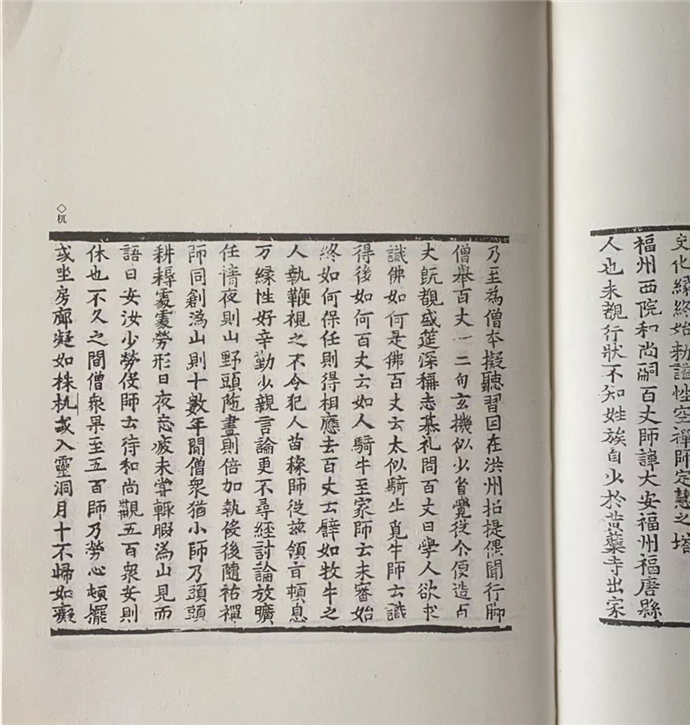 文化緣終始勅謚性空禪師定慧之塔
福州西院和尚嗣百丈師諱大安福州福唐縣
人也未覩行狀不知姓族自少於黃蘗寺出家
◇杌
乃至為僧本擬聽習因在洪州招提偶聞行脚
僧舉百丈一二句玄機似少省覺從尒便造
丈既覩盛筵深稱志慕礼問百丈曰學人欲求
識佛如何是佛百丈云太似騎牛覔牛師云識
得後如何百丈云如人騎牛至家師云未審始
終如何保任則得相應去百丈云譬如牧牛之
人執鞭視之不令犯人苗稼師從茲領旨頓息
万緣性好辛勤少親言論更不尋經討論放曠
任情夜則山野頭陁晝則倍加執役後隨祐禪
師同創溈山則十數年間僧衆猶小師乃頭頭
耕耨處處勞形日夜忘疲未嘗輙暇溈山見而
語曰安汝少勞役師云待和尚觀五百衆安則
休也不久之間僧衆果至五百師乃勞心頓擺
或坐房廊凝如株杌或入靈洞月十不歸如癡